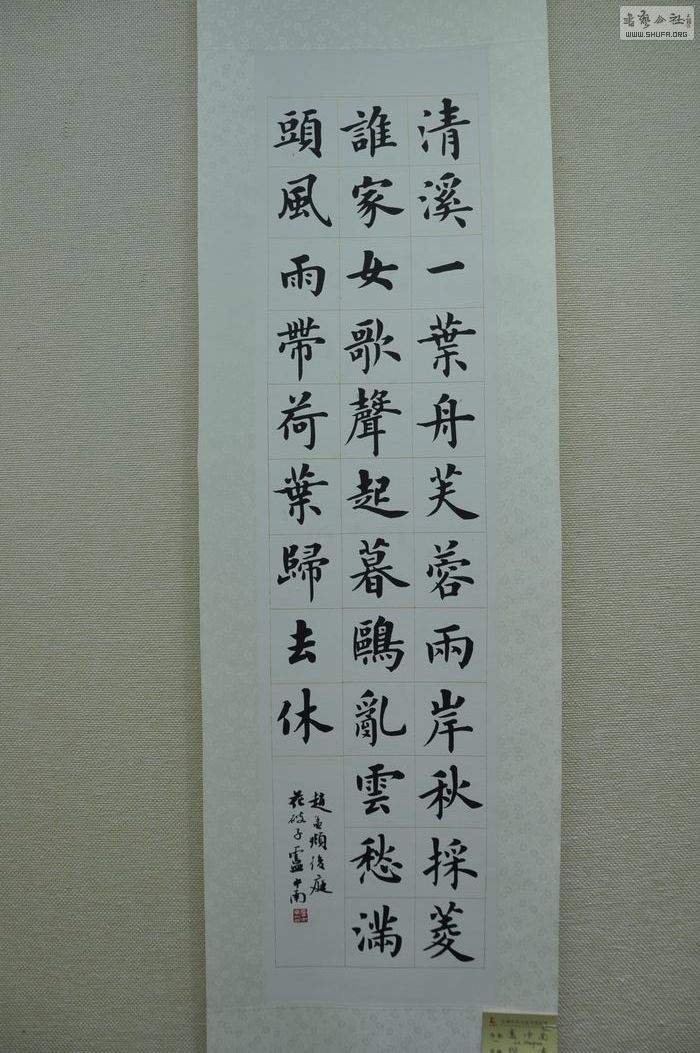 清溪一葉舟芙蓉兩岸秋採菱
誰家女歌聲起暮鷗亂雲愁滿
頭風雨帶荷葉歸去休
趙孟頫後庭
花破子盧中南
WWW.SHUFA.ORG